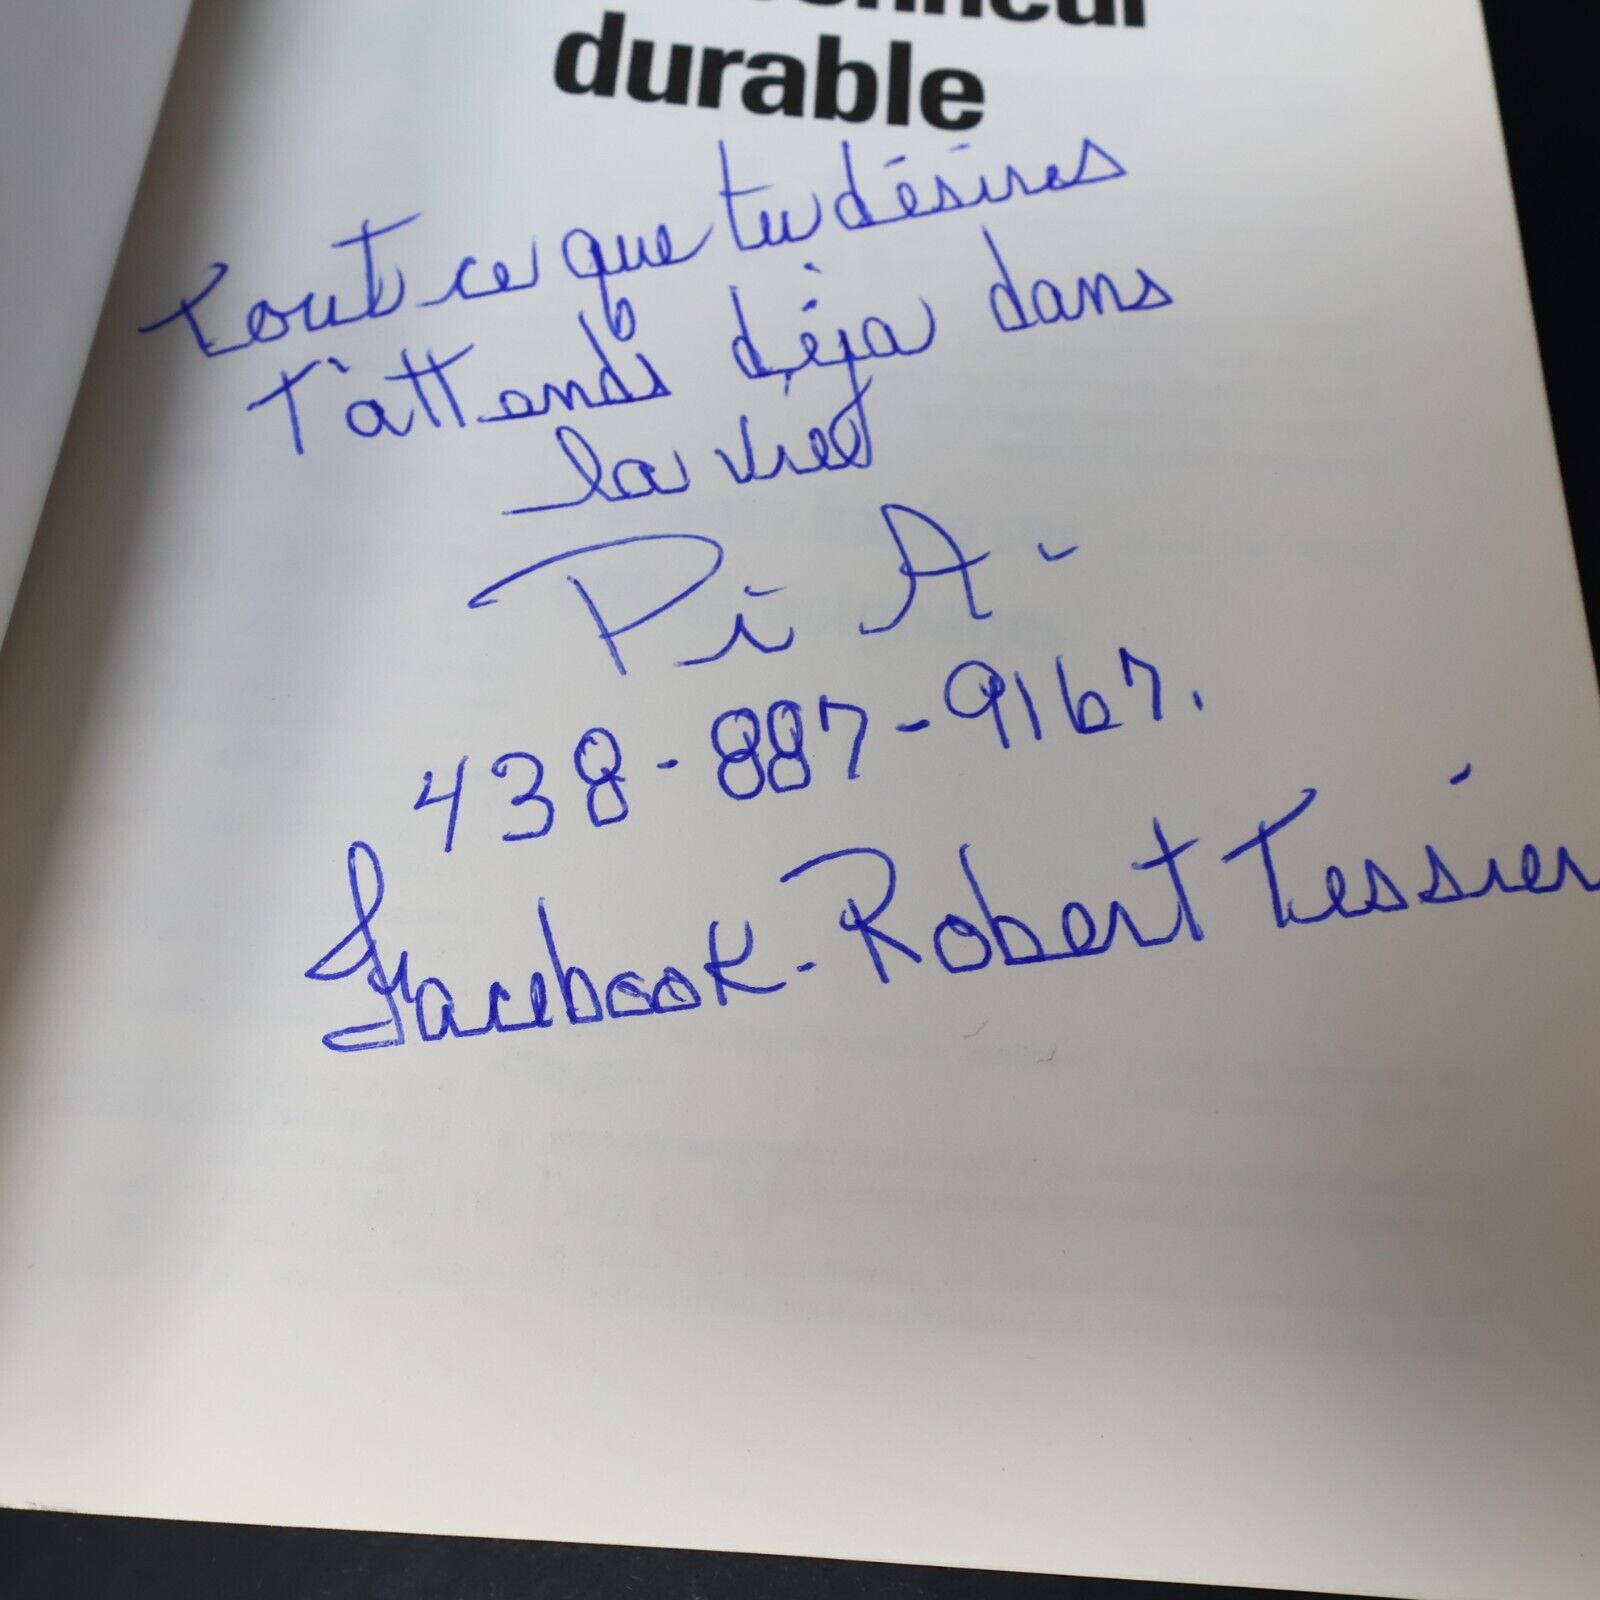 durable
Tout ce que tu désires
t'attends déja dans
la vie
Pi A -
438-887-9167.
Facebook - Robert Tessier